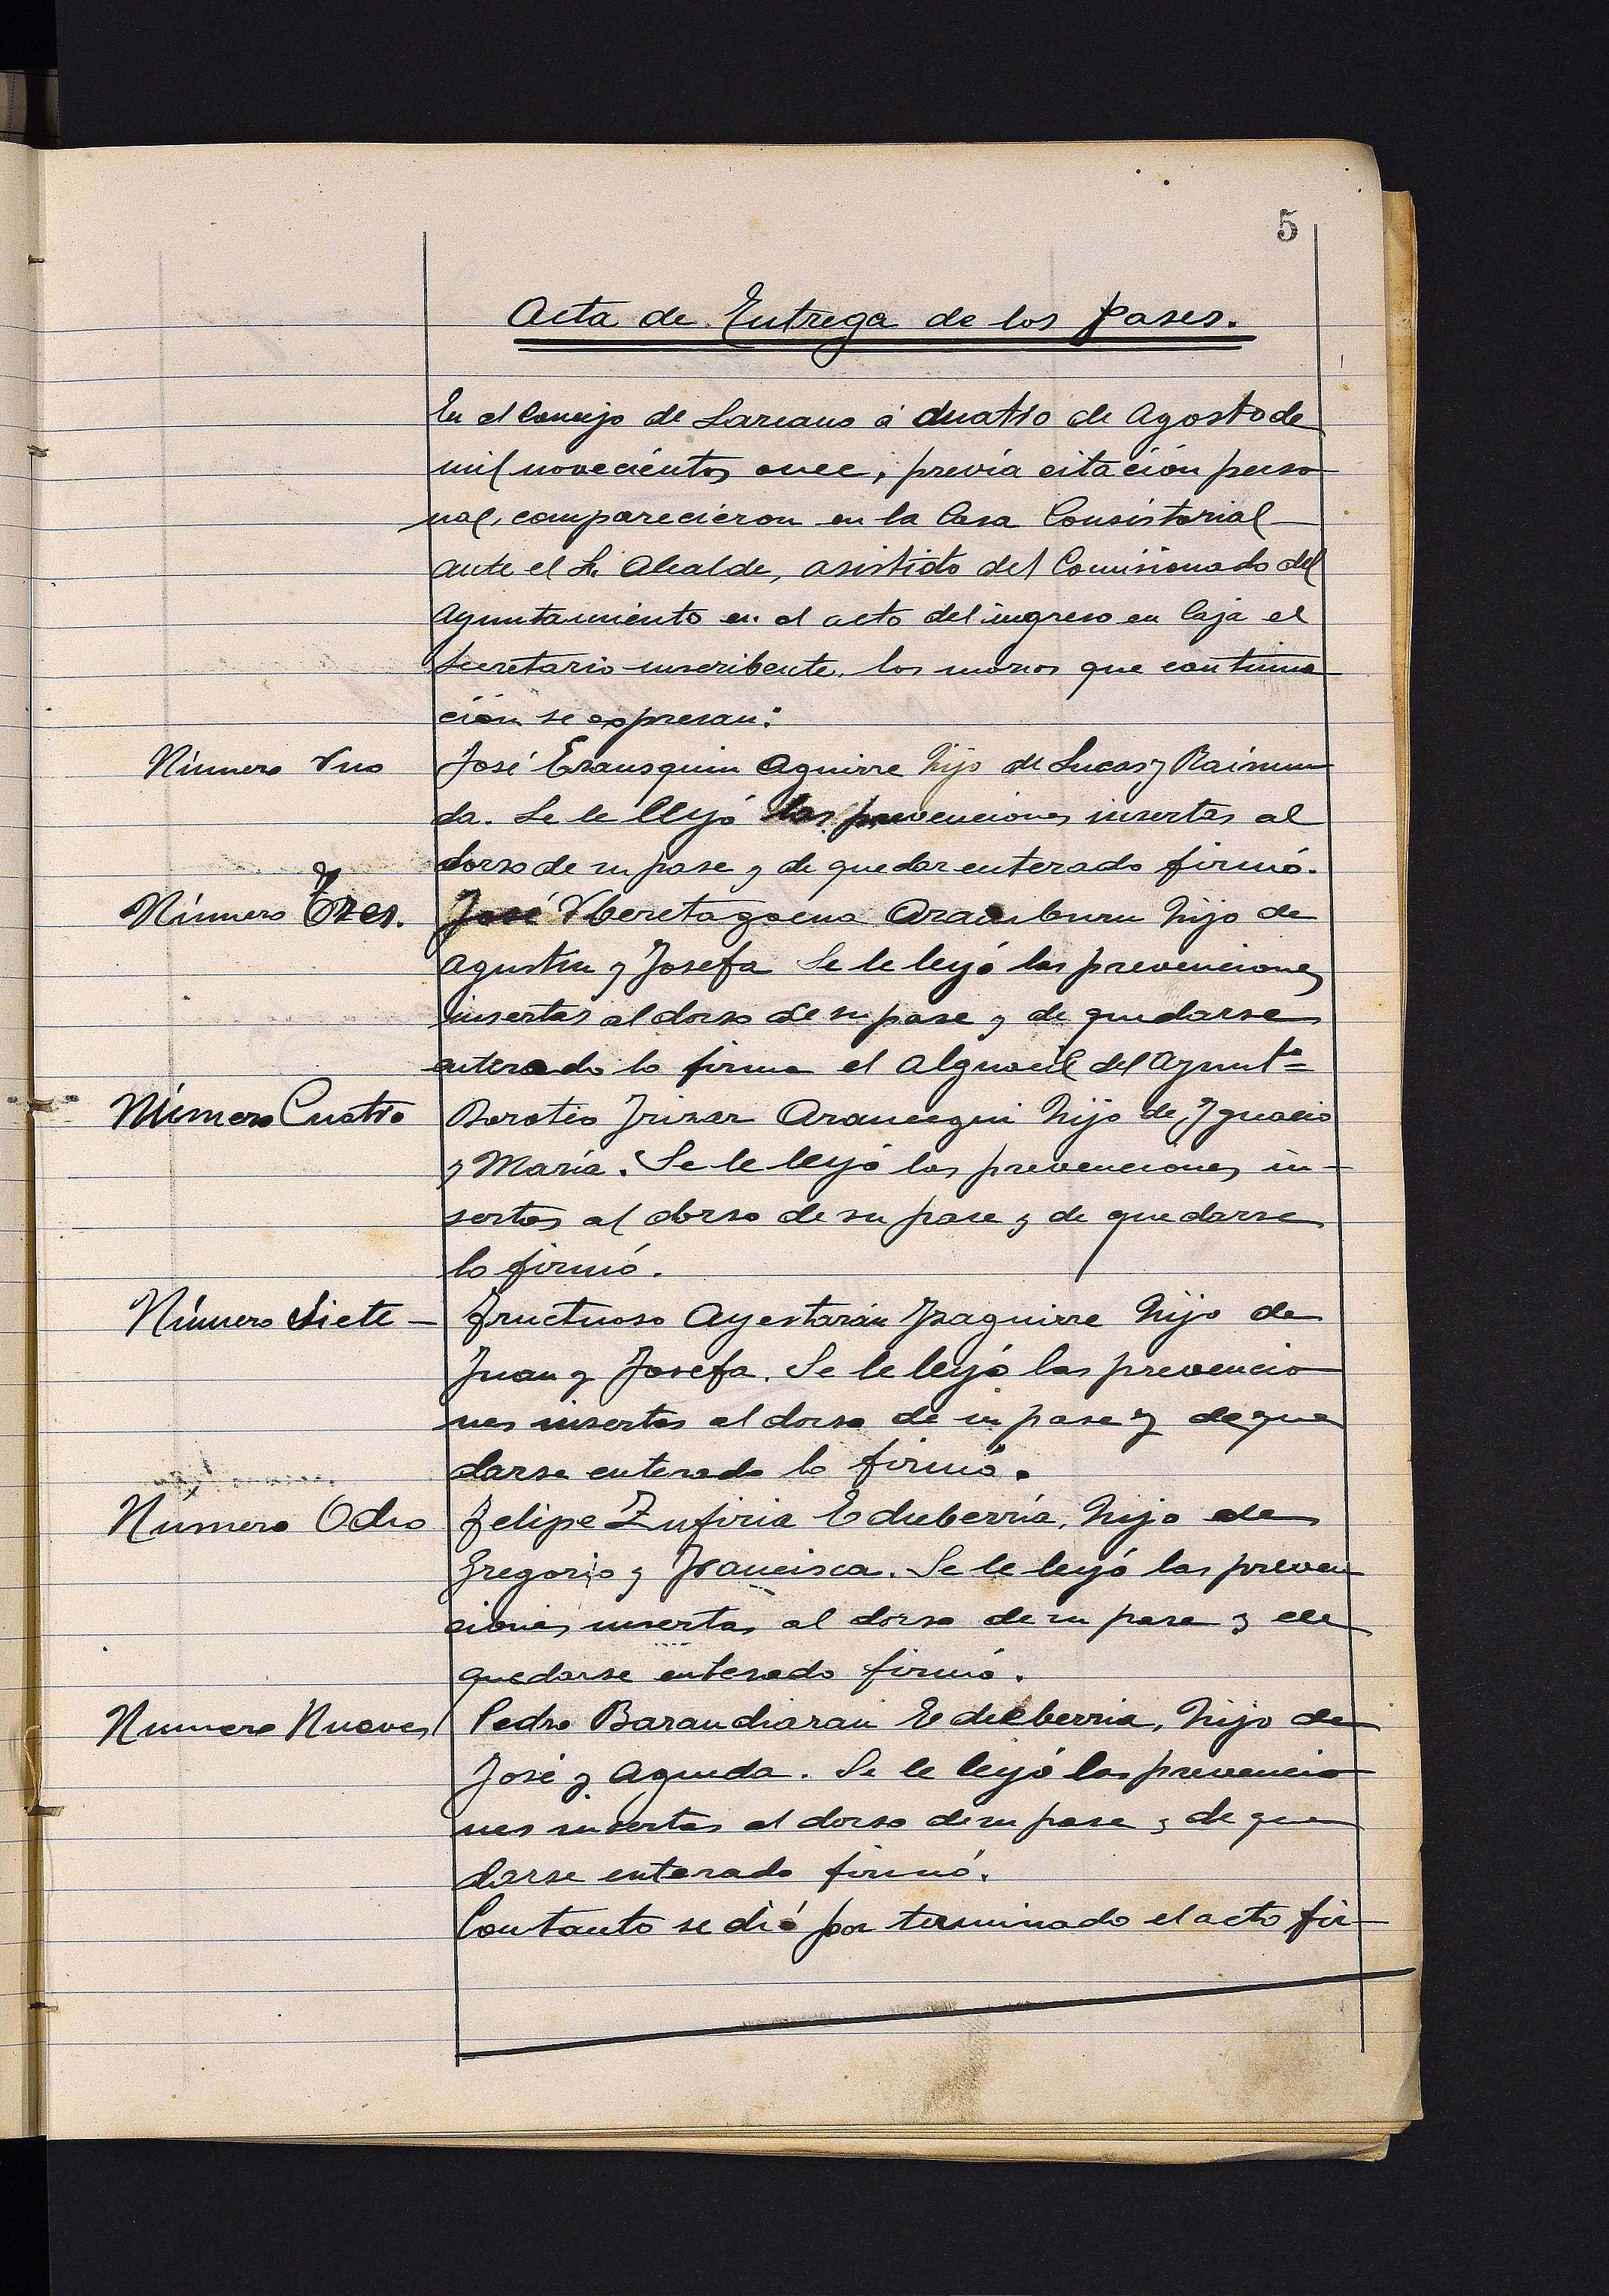 5
Acta de Entrega de los pases.
En el Concejo de Lazcano á cuatro de Agosto de
mil novecientos once, previa citación perso
nal, comparecieron en la Casa Consistorial
ante el Sr. Alcalde, asistido del Comisionado del
Ayuntamiento en el acto del ingreso en Caja el
Secretario inscribente, los mozos que continua
ción se expresan:
Número Uno José Erausquin Aguirre hijo de Lucas y Raimun
da. Se le lleyó las prevenciones insertas al
dorso de su pase y de quedar enterado firmó.
Número Tres. José Uberetagoena Aramburu hijo de
Agustín y Josefa Se le leyó las prevenciones
insertas al dorso de su pase y de quedarse
enterado lo firma el Alguacil del Ayuntº
Número Cuatro Irizar Arancegui hijo de Ignacio
y María. Se le leyó las prevenciones in-
sertas al dorso de su pase y de quedarse
lo firmó.
Número Siete - Fructuoso Ayestarán Izaguirre hijo de
Juan y Josefa. Se le leyó las prevencio
nes insertas al dorso de su pase y de que
darse enterado lo firmó.
Número Ocho Felipe Zufiria Echeberría, hijo de
Gregorio y Francisca. Se le leyó las preven
ciones insertas al dorso de su pase y de
quedarse enterado firmó.
Numero Nueve Pedro Barandiaran Echeberria, hijo de
José y Agueda. Se le leyó las prevencio
nes insertas al dorso de su pase y de que
darse enterado firmó.
Contanto se dió por terminado el acto fir-